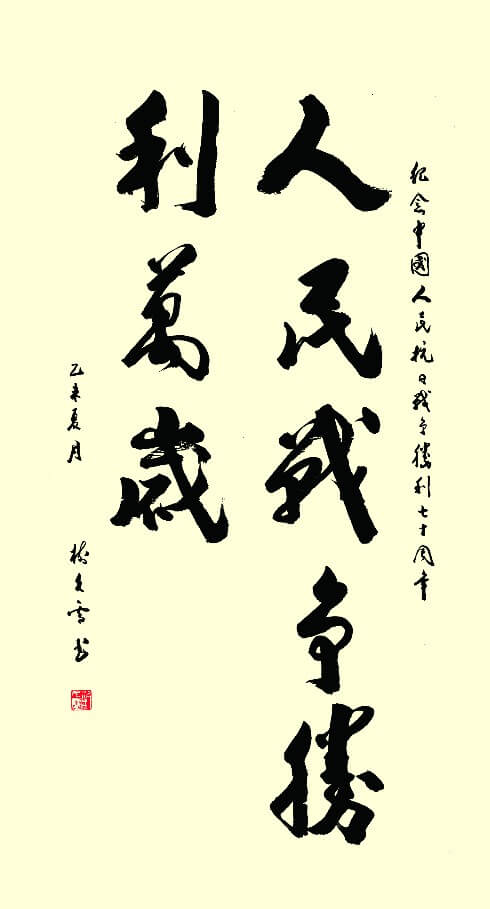 紀念中國人民抗日戰争勝利七十周年
人民戰争勝
利萬歲
乙未夏月